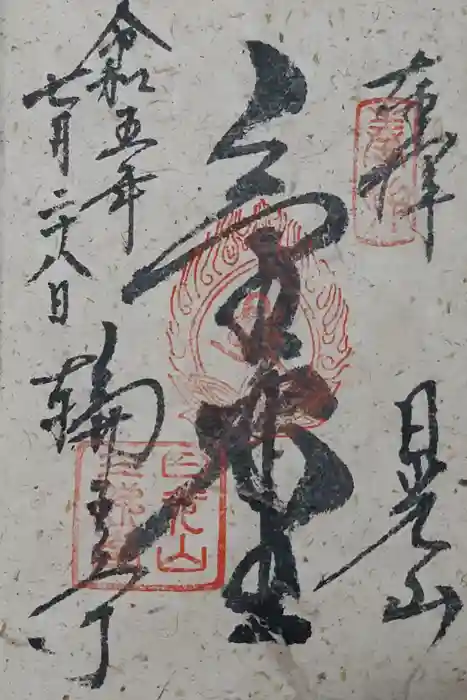 奉拝
日光山
金堂
令和五年
七月二十八日
輪王寺
日光山